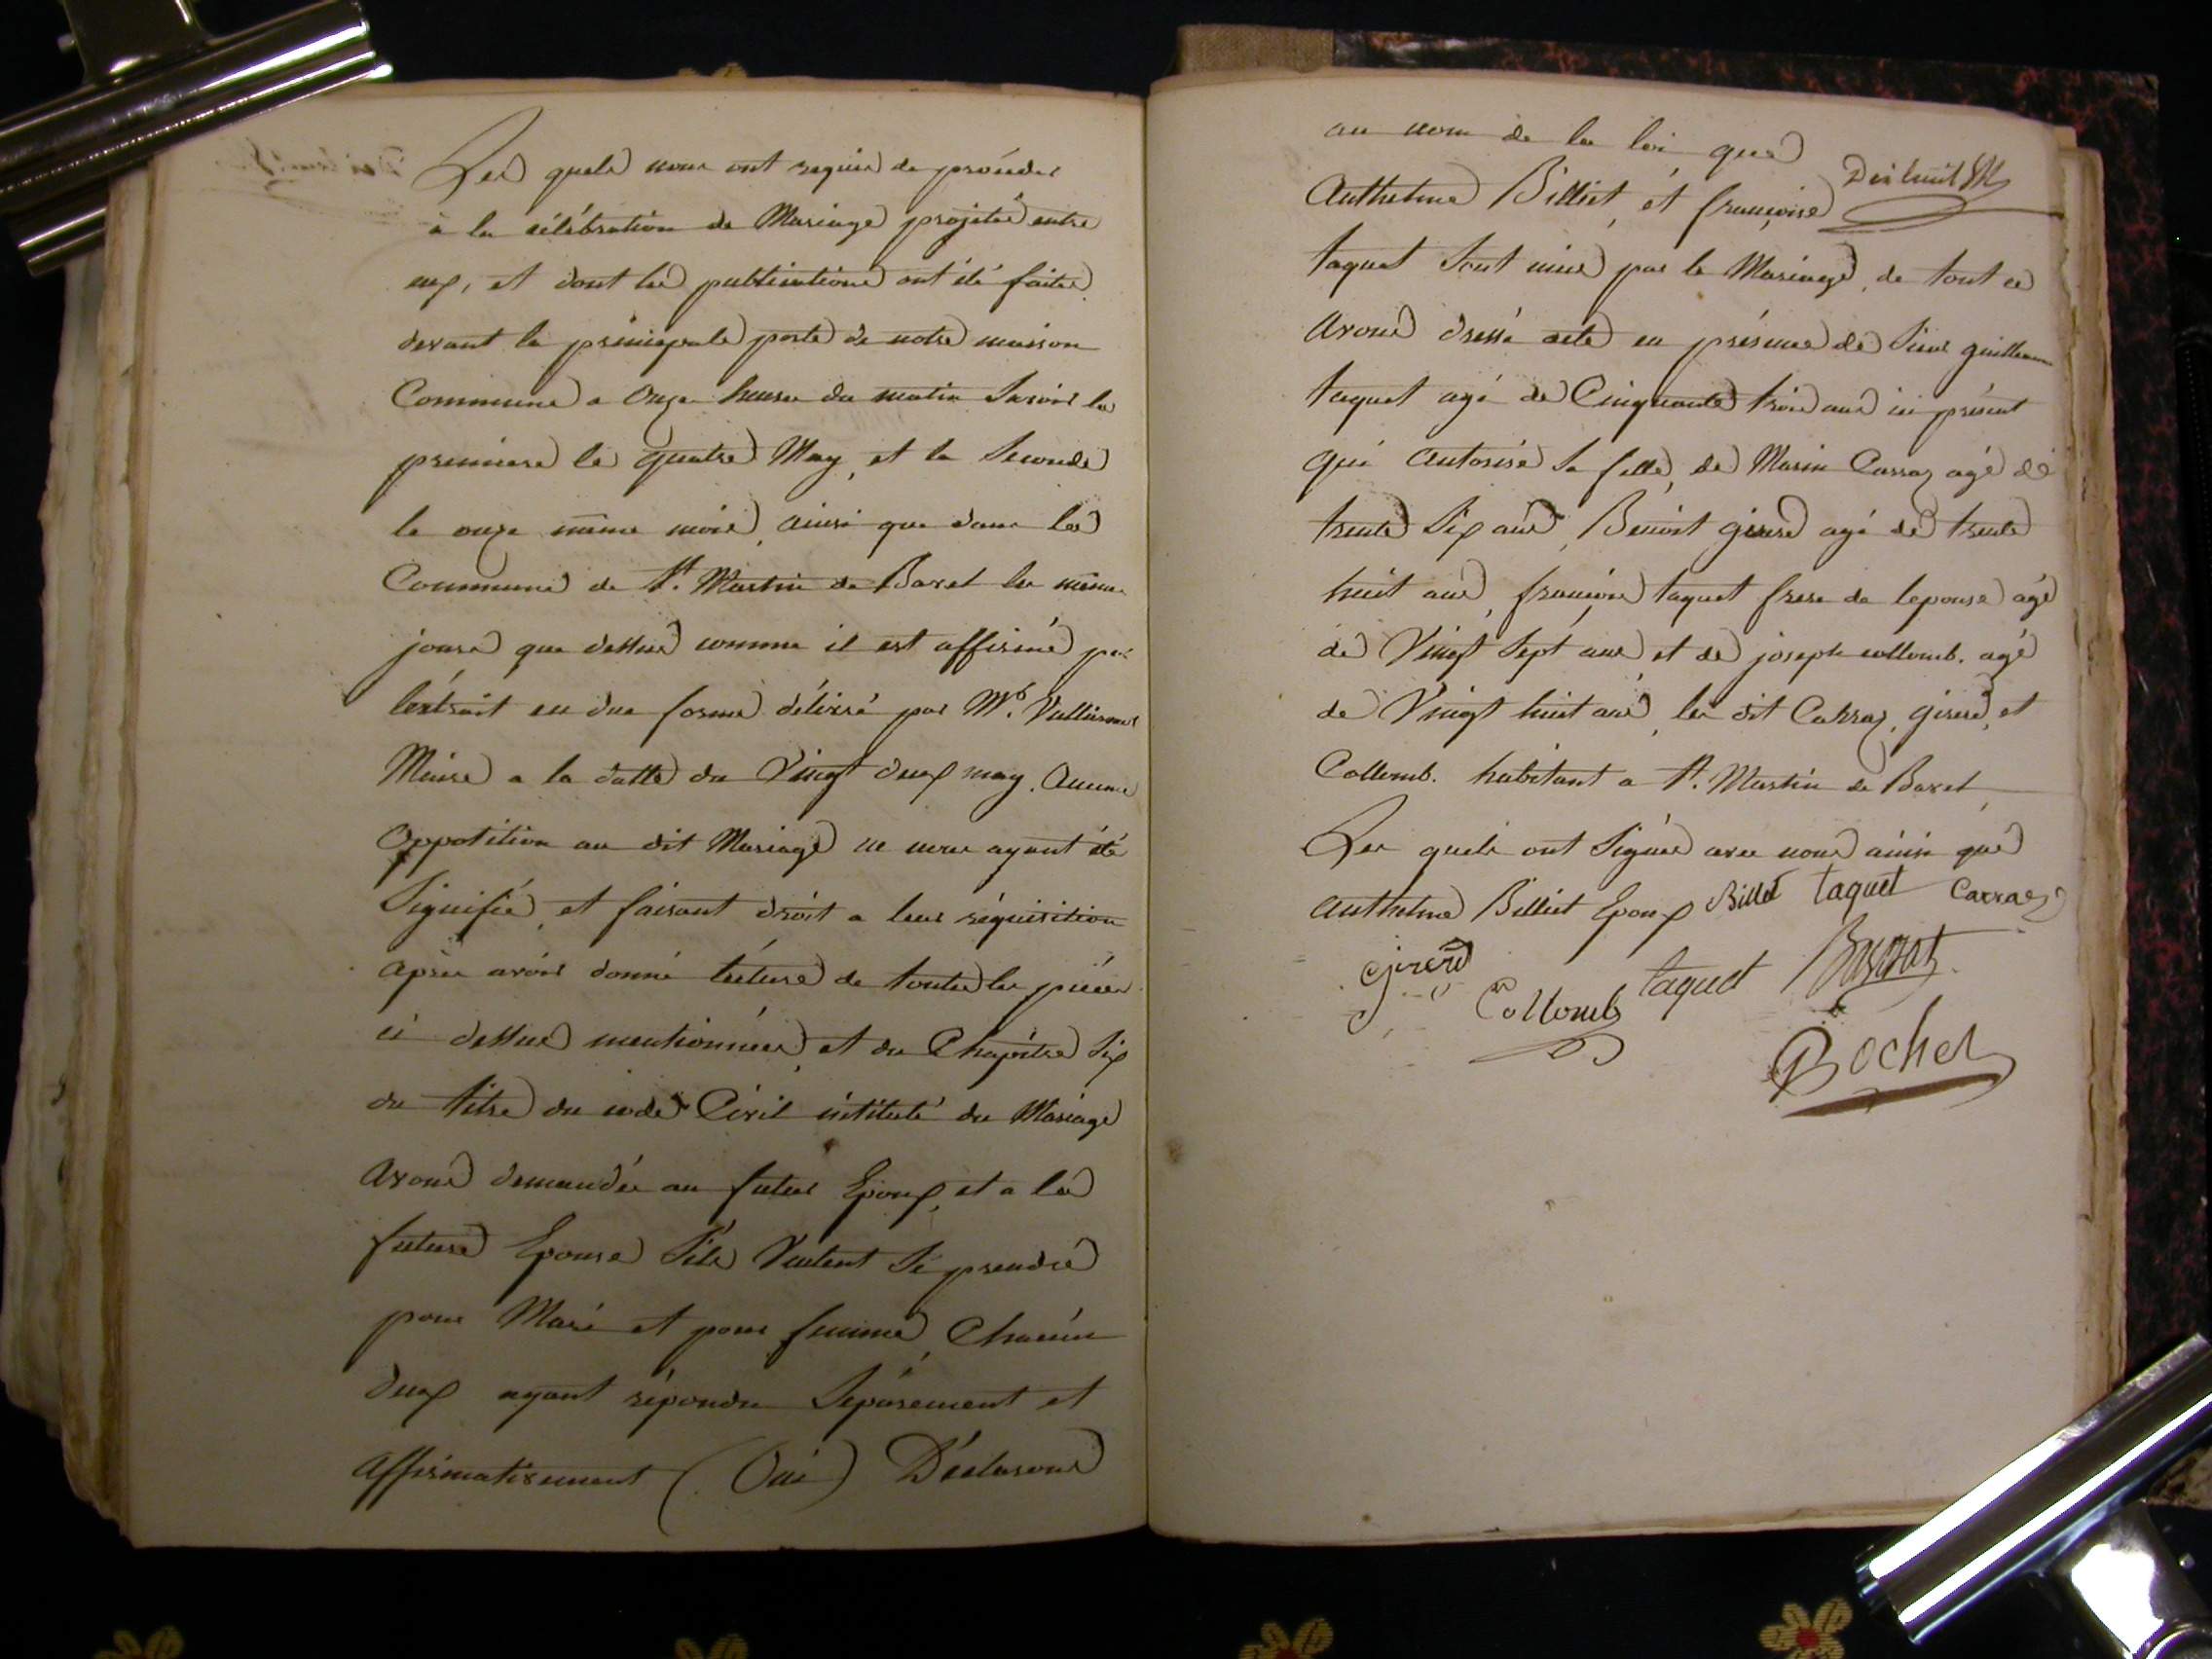 Les quels nous ont requis de procéder
à la célébration de Mariage projetée entre
eux, et dont les publications ont été faites
devant la principale porte de notre maison
Commune a onze heures du matin Savoir la
premiere le quatre May, et la Seconde
le onze même mois, ainsi que dans la
Commune de St. Martin de Bavel les mêmes
jours que dessus comme il est affirmé par
l'extrait en due forme délivré par Mr.
Maire a la datte du Vingt deux may. Aucune
Oppotition au dit Mariage ne nous ayant été
Signifié, et faisant droit a leur réquisition
après avoir donné lecture de toutes les pièces
ci dessus mentionnées, et du Chapitre Six
du titre du code Civil intitulé du Mariage
avons demandée au futur Epoux, et a la
future Epouse S'ils Veulent Se prendre
pour Mari et pour femme, Chacun
deux ayant répondu Séparement et
affirmativement (Oui) Déclarons
au nom de la loi que
Dix huit
Anthelme Billiet, et françoise
taquet Sont unis par le Mariage, de tout ce
avons dressé acte en présence de Sieur guillaume
taquet agé de Cinquante trois ans ici présent
qui autorise Sa fille, de Marin Carraz agé de
trente Six ans, Benoit girerd agé de trente
huit ans, françois taquet frere de lepouse agé
de Vingt Sept ans et de joseph collomb. agé
de Vingt huit ans, les dit Carraz, girerd, et
Collomb. habitant a St. Martin de Bavel
Les quels ont Signés avec nous ainsi que
Anthelme Billiet Epoux Billiet taquet Carraz
girerd
Collomb taquet
Rochet